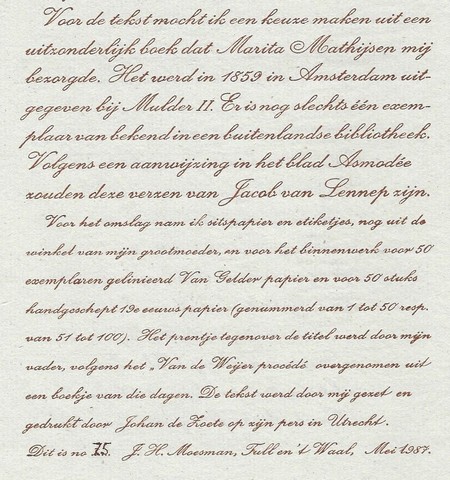 Voor de tekst mocht ik een keuze maken uit een
uitzonderlijk boek dat Marita Mathijsen mij
bezorgde. Het werd in 1859 in Amsterdam uit-
gegeven bij Mulder II. Er is nog slechts één exem-
plaar van bekend in een buitenlandse bibliotheek.
Volgens een aanwijzing in het blad Asmodée
zouden deze verzen van Jacob van Lennep zijn.
Voor het omslag nam ik sitspapier en etiketjes, nog uit de
winkel van mijn grootmoeder, en voor het binnenwerk voor 50
exemplaren gelinieerd Van Gelder papier en voor 50 stuks
handgeschept 19e eeuws papier (genummerd van 1 tot 50 resp.
van 51 tot 100). Het prentje tegenover de titel werd door mijn
vader, volgens het „Van de Weijer procédé overgenomen uit
een boekje van die dagen. De tekst werd door mij gezet en
gedrukt door Johan de Zoete op zijn pers in Utrecht.
Dit is no 75. J. H. Moesman, Tull en 't Waal, Mei 1987.